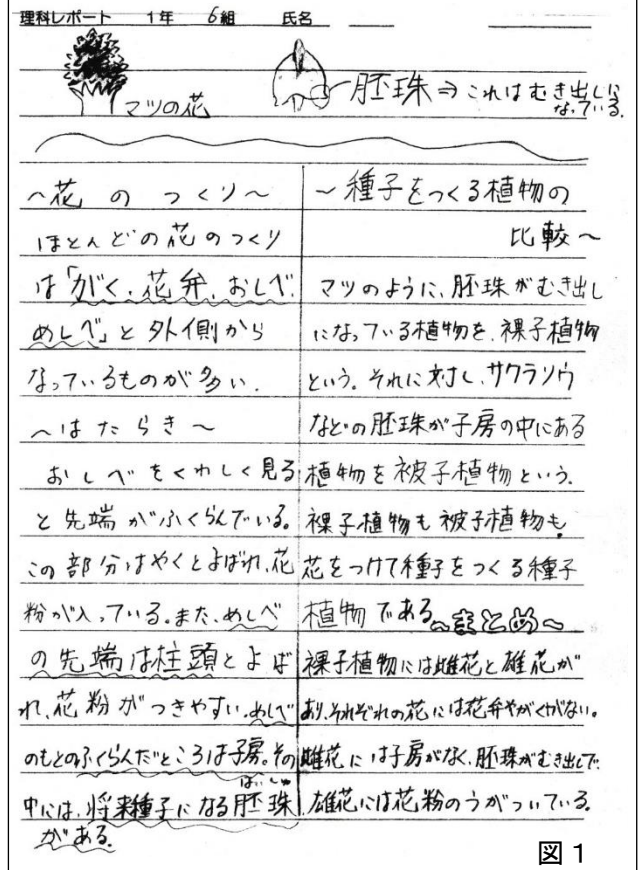 理科レポート 1年 6組 氏名
マツの花
胚珠⇒これはむき出しに
なっている.
~花のつくり~
ほとんどの花のつくり
は「がく、花弁、おしべ、
めしべ」と外側から
なっているものが多い.
~はたらき~
おしべをくわしく見る
と先端がふくらんでいる。
この部分はやくとよばれ、花
粉が入っている.また、めしべ
の先端は柱頭とよば
れ、花粉がつきやすい.めしべ
のもとのふくらんだところは子房。その
ばいしゅ
中には、将来種子になる胚珠
がある.
~種子をつくる植物の
比較~
マツのように、胚珠がむき出し
になっている植物を、裸子植物
という。それに対し、サクラソウ
などの胚珠が子房の中にある
植物を被子植物という.
裸子植物も被子植物も
花をつけて種子をつくる種子
植物である~まとめ~
裸子植物には雌花と雄花が
あり、それぞれの花には花弁やがくがない。
雌花には子房がなく、胚珠がむき出しで、
雄花には花粉のうがついている.
図1